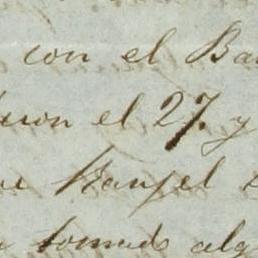 con el Ba
ieron el 27. y
Rangel
tomado alg